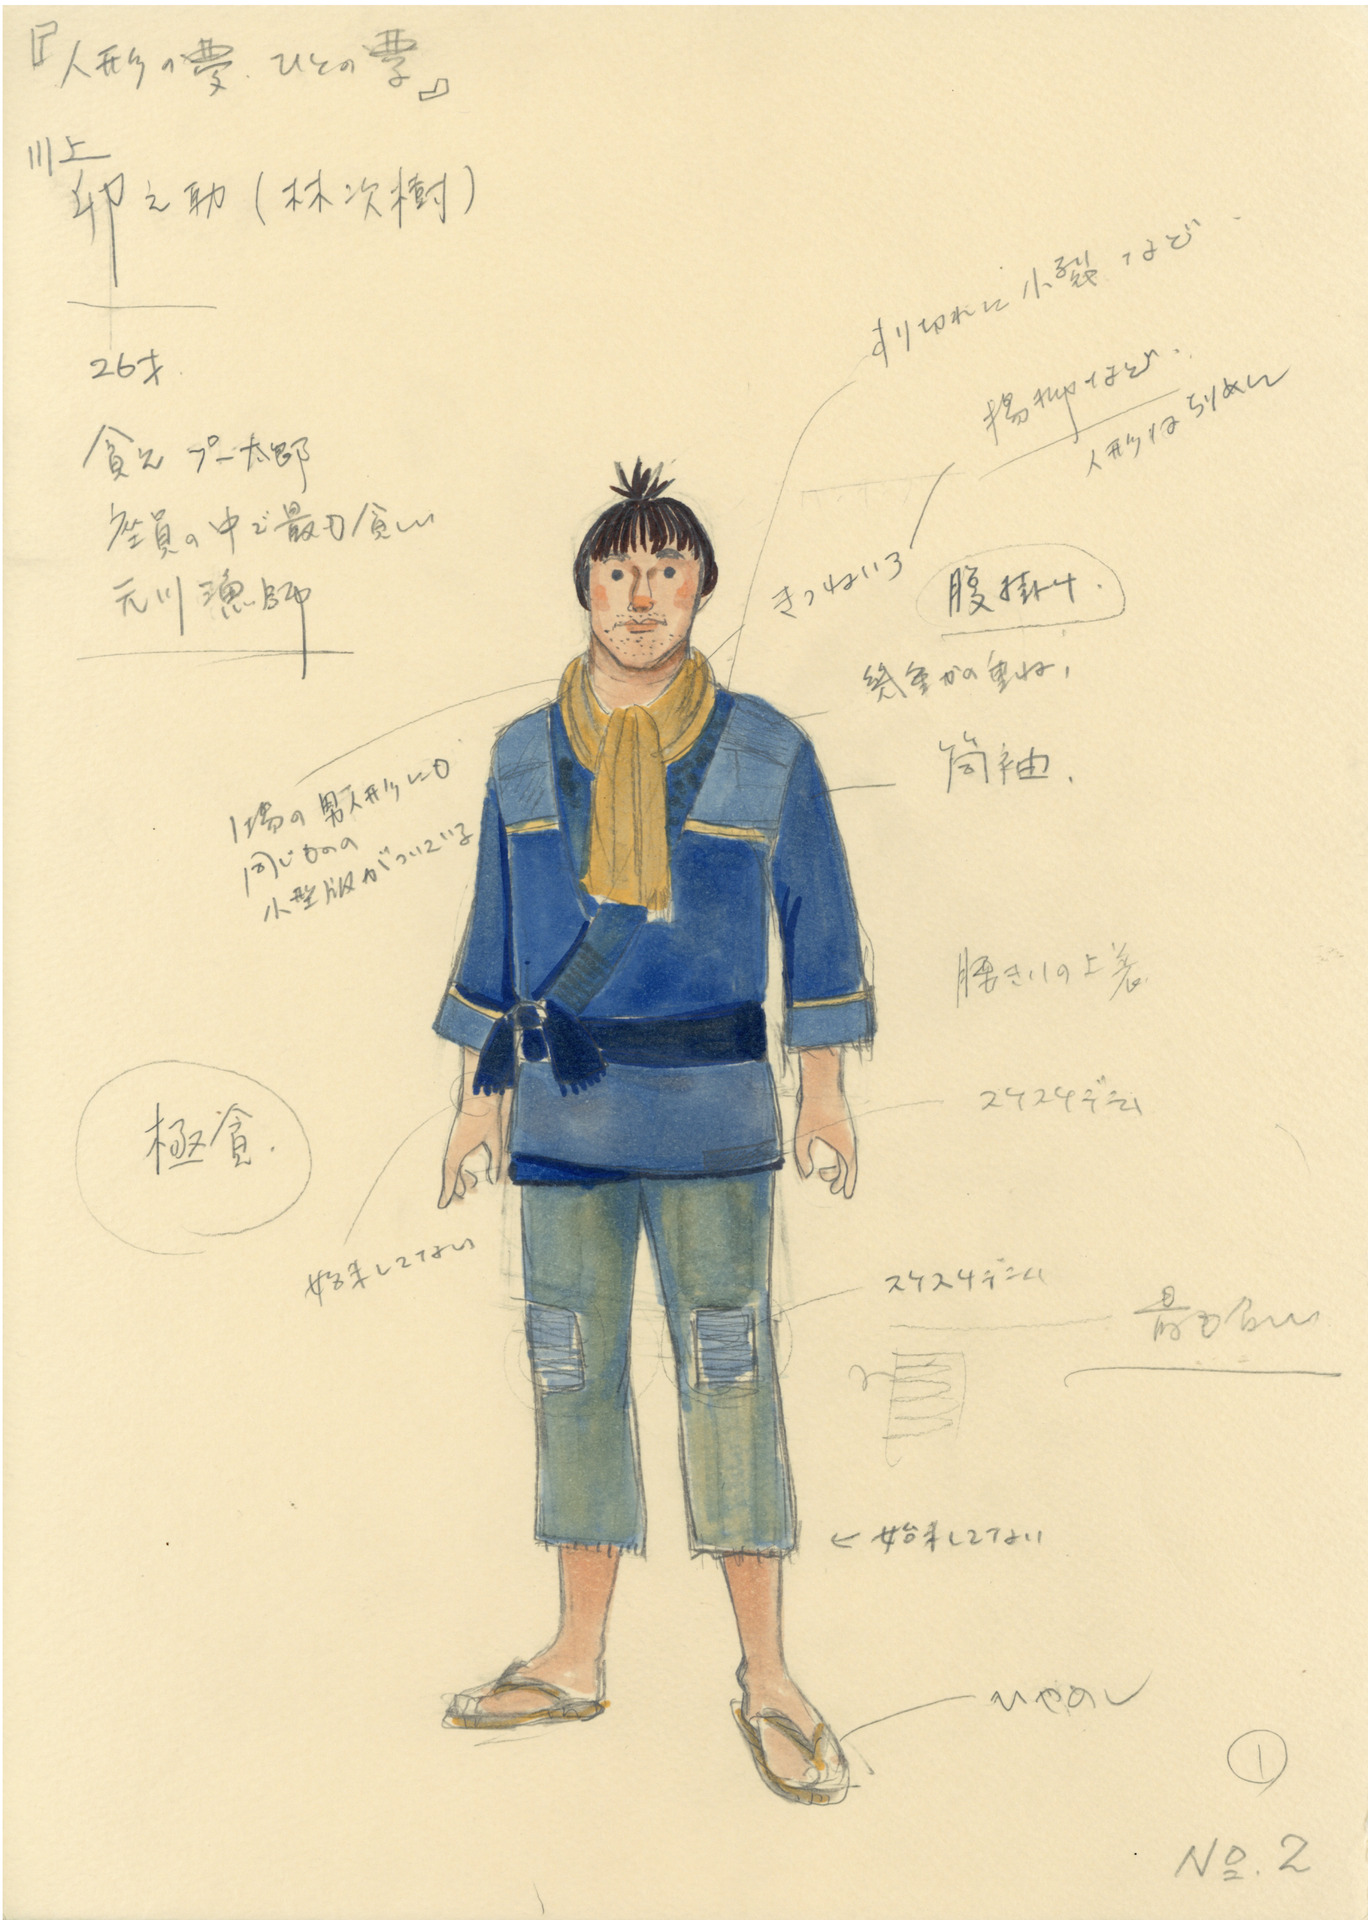 『人形の夢 ひとの夢』
川上
卯之助(林次樹)
26才
貧乏 プー太郎
座員の中で最も貧しい
元川漁師
すり切れに小裂など
楊柳など
人形はちりめん
きつねいろ
腹掛け
幾重かの重ね
筒袖
1場の男人形にも
同じものの
小型版がついている
腰きりの上着
スケスケデニム
極貧
始末してない
スケスケデニム
最も貧しい
← 始末してない
ひやめし
①
No. 2